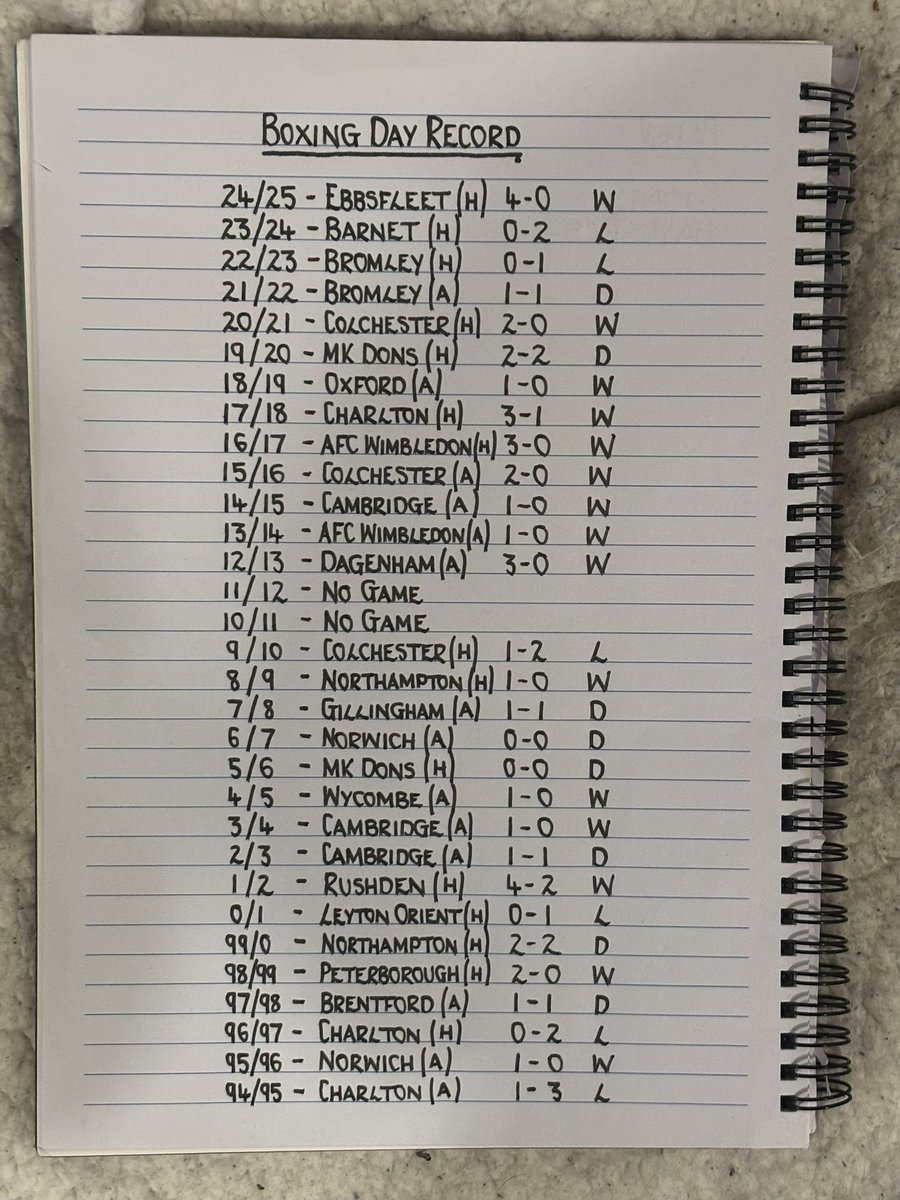 BOXING DAY RECORD
24/25 - EBBSFLEET (H) 4-0 W
23/24 - BARNET (H) 0-2 L
22/23 - BROMLEY (H) 0-1 L
21/22 - BROMLEY (A) 1-1 D
20/21 - COLCHESTER (H) 2-0 W
19/20 - MK DONS (H) 2-2 D
18/19 - OXFORD (A) 1-0 W
17/18 - CHARLTON (H) 3-1 W
16/17 - AFC WIMBLEDON (H) 3-0 W
15/16 - COLCHESTER (A) 2-0 W
14/15 - CAMBRIDGE (A) 1-0 W
13/14 - AFC WIMBLEDON (A) 1-0 W
12/13 - DAGENHAM (A) 3-0 W
11/12 - NO GAME
10/11 - NO GAME
9/10 - COLCHESTER (H) 1-2 L
8/9 - NORTHAMPTON (H) 1-0 W
7/8 - GILLINGHAM (A) 1-1 D
6/7 - NORWICH (A) 0-0 D
5/6 - MK DONS (H) 0-0 D
4/5 - WYCOMBE (A) 1-0 W
3/4 - CAMBRIDGE (A) 1-0 W
2/3 - CAMBRIDGE (A) 1-1 D
1/2 - RUSHDEN (H) 4-2 W
0/1 - LEYTON ORIENT (H) 0-1 L
99/0 - NORTHAMPTON (H) 2-2 D
98/99 - PETERBOROUGH (H) 2-0 W
97/98 - BRENTFORD (A) 1-1 D
96/97 - CHARLTON (H) 0-2 L
95/96 - NORWICH (A) 1-0 W
94/95 - CHARLTON (A) 1-3 L